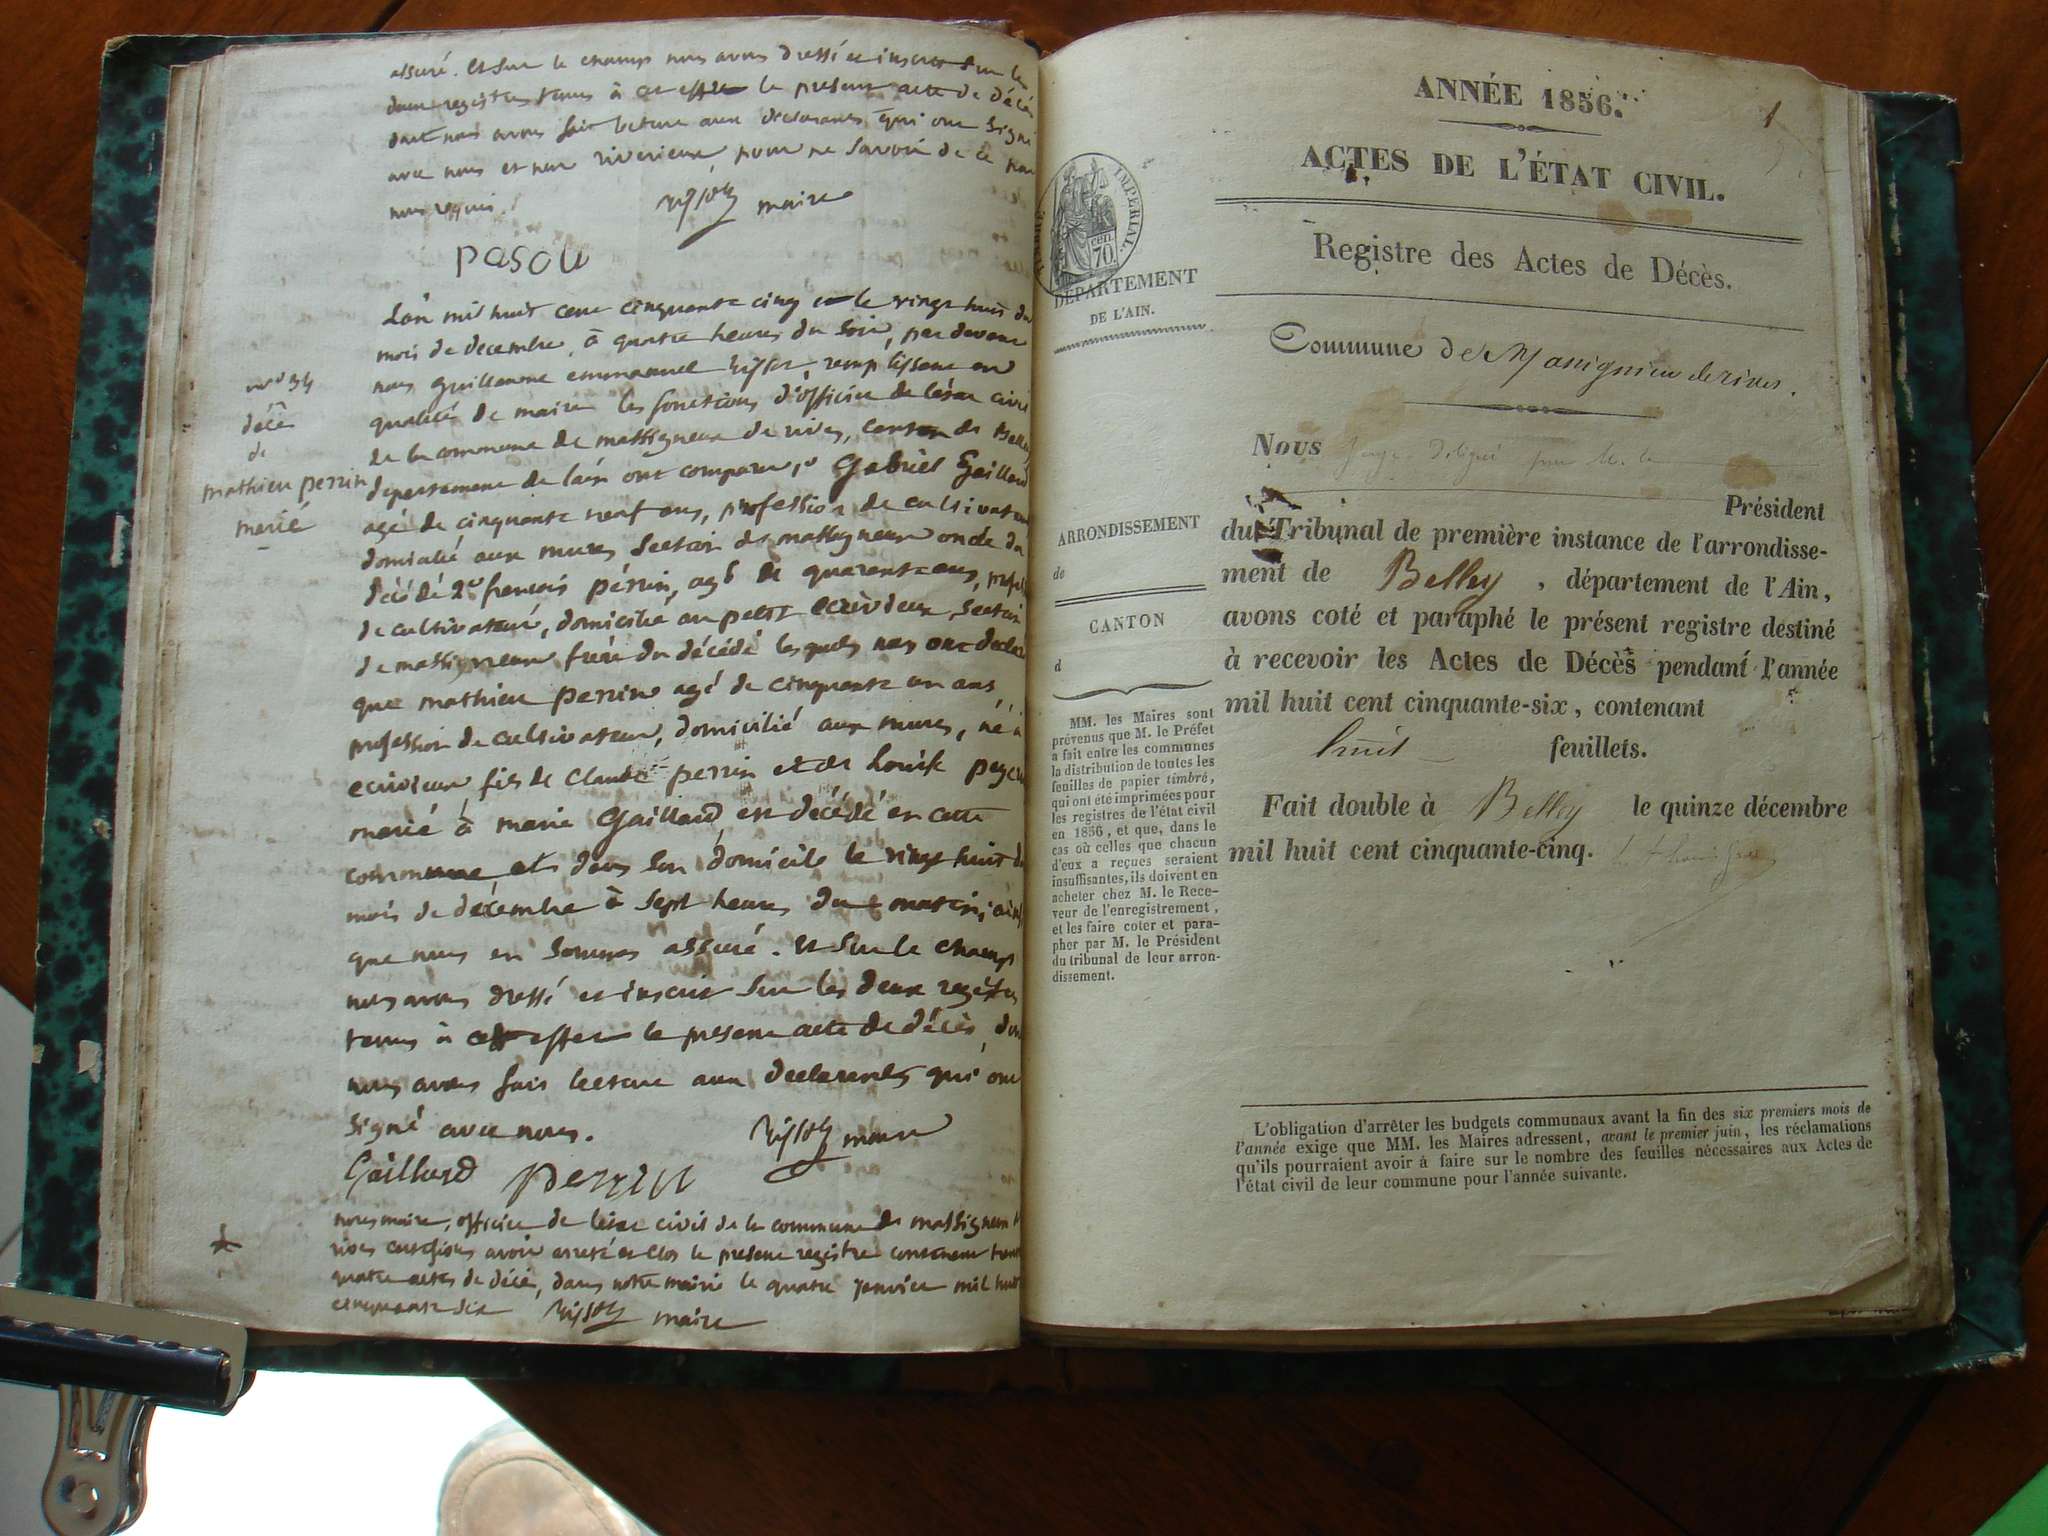 assuré. et sur le champ nous avons dressé et inscrit sur les
deux registres tenus à cet effet le present acte de décès
dont nous avons fait lecture aux declarants qui ont signé
avec nous et non riverieux pour ne savoir de ce
nous requis.
maire
pasou
L'an mil huit cent cinquante cinq et le vingt huit du
mois de decembre, à quatre heures du soir, par devant
nous guillaume emmanuel, remplissant en
qualité de maire les fonctions d'officier de l'état civil
de la commune de massigneux de rives, canton de Belley
departement de l'ain ont comparu, 1º Gabriel Gaillard
agé de cinquante neuf ans, profession de cultivateur
domicilié aux mures section de massigneux oncle du
décédé 2º françois perrin, agé de quarante ans, profession
de cultivateur, domicilié au petit ecrivieux, section
de massigneux frère du décédé lesquels nous ont declaré
que mathieu perrin agé de cinquante un ans
profession de cultivateur, domicilié aux mures, né à
ecrivieux fils de claude perrin et de Louise
marié à marie Gaillard est décédé en cette
commune et dans son domicile le vingt huit du
mois de décembre à sept heures du matin, ainsi
que nous en sommes assuré. et sur le champ
nous avons dressé et inscrit sur les deux registres
tenus à cet effet le present acte de décès, dont
nous avons fait lecture aux declarents qui ont
signé avec nous.
maire
Gaillard perrin
nous maire, officier de l'état civil de la commune de massigneux de
rives certifions avoir arreté et clos le present registre contenant trente
quatre actes de décè, dans notre mairie le quatre janvier mil huit
cinquante six
maire
nº 34
décè
de
mathieu perrin
marié
ANNÉE 1856.
1
ACTES DE L'ÉTAT CIVIL.
Registre des Actes de Décès.
IMPÉRIAL
70 cen.
DÉPARTEMENT
DE L'AIN.
Commune de Massignieu de rives.
Nous Juge délégué par M. le
Président
du Tribunal de première instance de l'arrondisse-
ment de Belley, département de l'Ain,
avons coté et paraphé le présent registre destiné
à recevoir les Actes de Décès pendant l'année
mil huit cent cinquante-six, contenant
huit feuillets.
Fait double à Belley le quinze décembre
mil huit cent cinquante-cinq.
ARRONDISSEMENT
de
CANTON
d
MM. les Maires sont
prévenus que M. le Préfet
a fait entre les communes
la distribution de toutes les
feuilles de papier timbré,
qui ont été imprimées pour
les registres de l'état civil
en 1856, et que, dans le
cas où celles que chacun
d'eux a reçues seraient
insuffisantes, ils doivent en
acheter chez M. le Rece-
veur de l'enregistrement,
et les faire coter et para-
pher par M. le Président
du tribunal de leur arron-
dissement.
L'obligation d'arrêter les budgets communaux avant la fin des six premiers mois de
l'année exige que MM. les Maires adressent, avant le premier juin, les réclamations
qu'ils pourraient avoir à faire sur le nombre des feuilles nécessaires aux Actes de
l'état civil de leur commune pour l'année suivante.